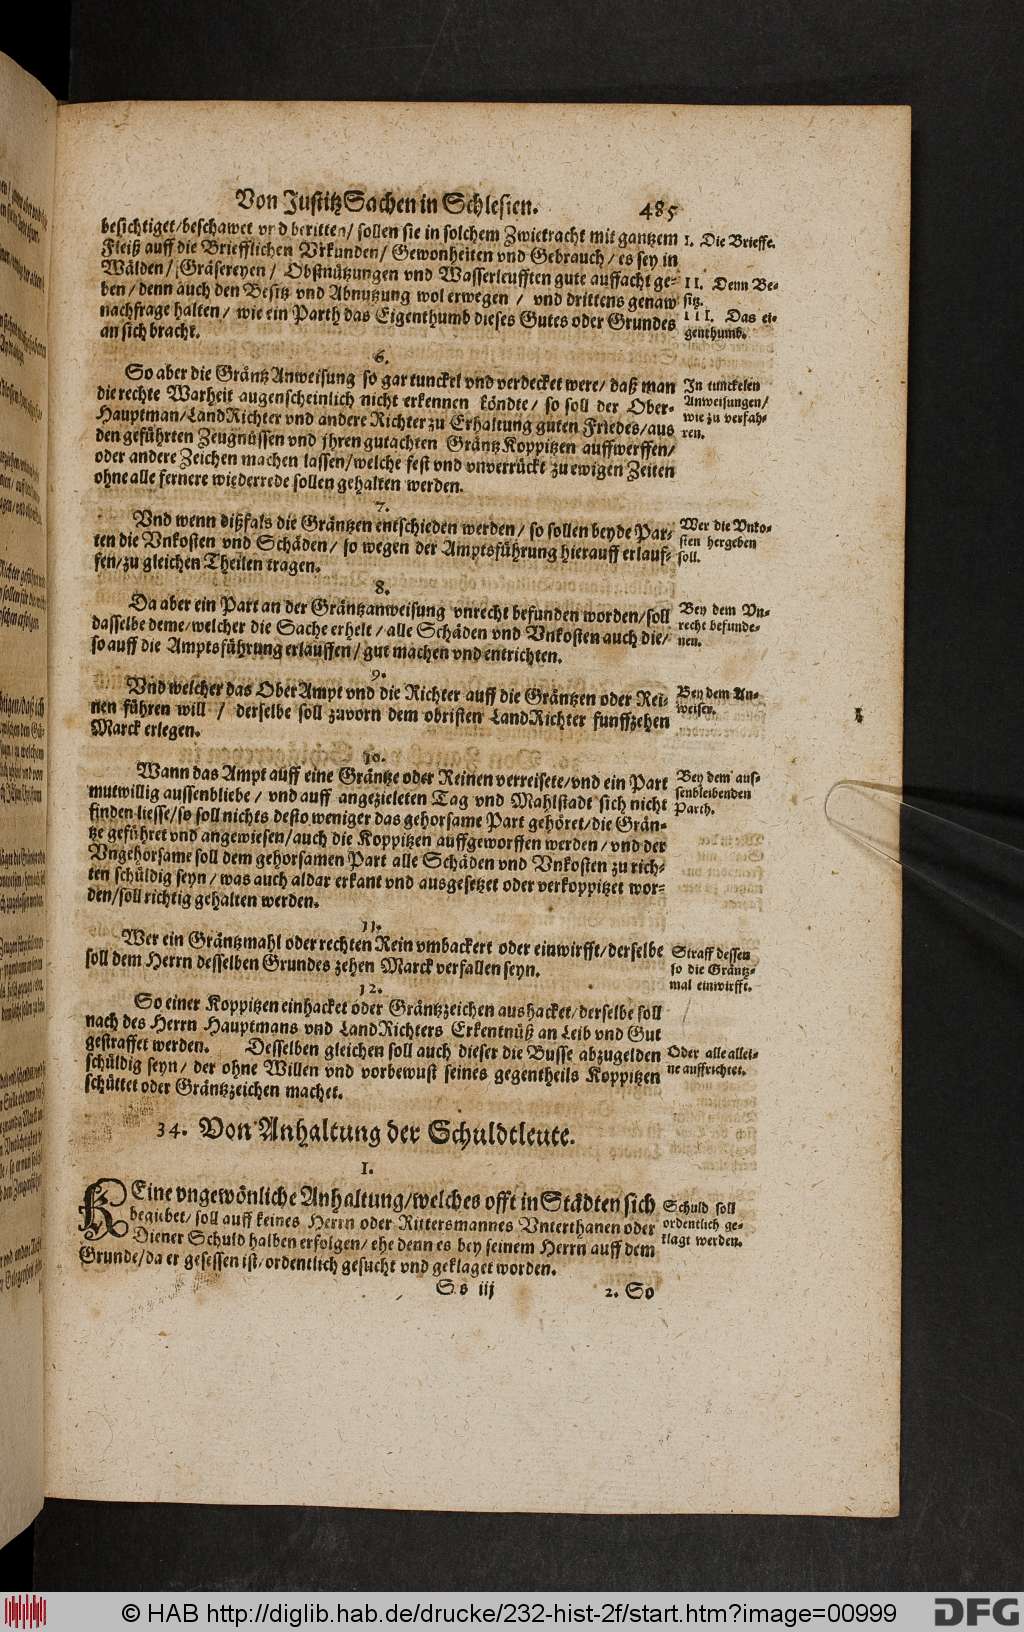 Von Justitz Sachen in Schlesien. 485
besichtiget/beschawet vnd beritten/ sollen sie in solchem Zwietracht mit gantzem
Fleiß auff die Briefflichen Vrkunden/ Gewonheiten vnd Gebrauch/ es sey in
Wälden/ Gräsereyen/ Obstnützungen vnd Wasserleufften gute auffacht ge-
ben/ denn auch den Besitz vnd Abnutzung wol erwegen/ vnd drittens genaw
nachfrage halten/ wie ein Parth das Eigenthumb dieses Gutes oder Grundes
an sich bracht.
I. Die Brieffe.
II. Denn Be-
sitz.
III. Das ei-
genthumb.
6.
So aber die Gräntz Anweisung so gar tunckel vnd verdecket were/ daß man
die rechte Warheit augenscheinlich nicht erkennen köndte/ so soll der Ober-
Hauptman/ LandRichter vnd andere Richter zu Erhaltung guten Friedes/ aus
den geführten Zeugnüssen vnd jhren gutachten Gräntz Koppitzen auffwerffen/
oder andere Zeichen machen lassen/ welche fest vnd vnverrückt zu ewigen Zeiten
ohne alle fernere wiederrede sollen gehalten werden.
In tunckelen
Anweisungen/
wie zu verfah-
ren.
7.
Vnd wenn dißfals die Gräntzen entschieden werden/ so sollen beyde Par-
ten die Vnkosten vnd Schäden/ so wegen der Amptsführung hierauff erlauf-
fen/ zu gleichen Theilen tragen.
Wer die Vnko-
sten hergeben
soll.
8.
Da aber ein Part an der Gräntzanweisung vnrecht befunden worden/ soll
dasselbe deme/ welcher die Sache erhelt/ alle Schäden vnd Vnkosten auch die/
so auff die Amptsführung erlauffen/ gut machen vnd entrichten.
Bey dem Vn-
recht befunde-
nen.
9.
Vnd welcher das Ober Ampt vnd die Richter auff die Gräntzen oder Rei-
nen führen will/ derselbe soll zuvorn dem obristen LandRichter funffzehen
Marck erlegen.
Bey dem An-
weiser.
10.
Wann das Ampt auff eine Gräntze oder Reinen verreisete/ vnd ein Part
mutwillig aussenbliebe/ vnd auff angezieleten Tag vnd Mahlstadt sich nicht
finden liesse/ so soll nichts desto weniger das gehorsame Part gehöret/ die Grän-
tze geführet vnd angewiesen/ auch die Koppitzen auffgeworffen werden/ vnd der
Vngehorsame soll dem gehorsamen Part alle Schäden vnd Vnkosten zu rich-
ten schüldig seyn/ was auch aldar erkant vnd ausgesetzet oder verkoppitzet wor-
den/ soll richtig gehalten werden.
Bey dem aus-
senbleibenden
Parth.
11.
Wer ein Gräntzmahl oder rechten Rein vmbackert oder einwirfft/ derselbe
soll dem Herrn desselben Grundes zehen Marck verfallen seyn.
Straff dessen
so die Gräntz-
mal einwirfft.
12.
So einer Koppitzen einhacket oder Gräntzzeichen aushacket/ derselbe soll
nach des Herrn Hauptmans vnd LandRichters Erkentnüß an Leib vnd Gut
gestraffet werden. Desselben gleichen soll auch dieser die Busse abzugelden
schüldig seyn/ der ohne Willen vnd vorbewust seines gegentheils Koppitzen
schüttet oder Gräntzzeichen machet.
Oder alle allei-
ne auffrichtet.
34. Von Anhaltung der Schuldtleute.
I.
KEine vngewönliche Anhaltung/ welches offt in Städten sich
begiebet/ soll auff keines Herrn oder Rittersmannes Vnterthanen oder
Diener Schuld halben erfolgen/ ehe denn es bey seinem Herrn auff dem
Grunde/ da er gesessen ist/ ordentlich gesucht vnd geklaget worden.
Schuld soll
ordentlich ge-
klagt werden.
Ss iij 2. So
© HAB http://diglib.hab.de/drucke/232-hist-2f/start.htm?image=00999
DFG